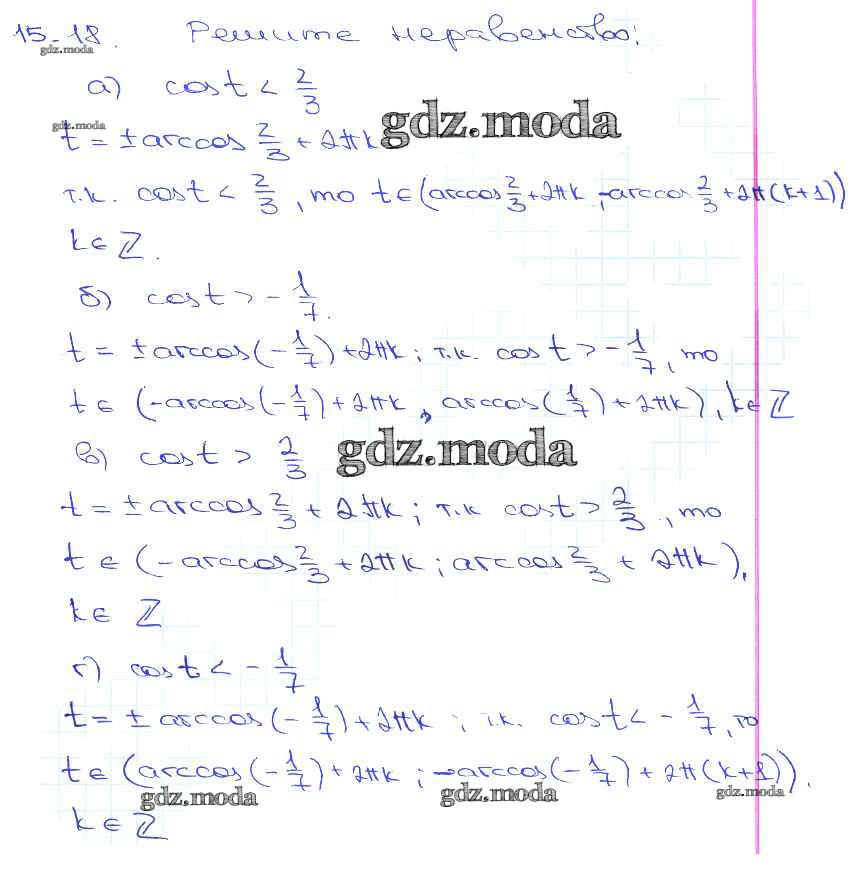 15-18. Решите неравенство:
gdz.moda
а) cos t < 2/3
gdz.moda
t = ± arccos 2/3 + 2πk
gdz.moda
т.к. cos t < 2/3, то t ∈ (arccos 2/3 + 2πk; -arccos 2/3 + 2π(k+1))
k ∈ ℤ.
б) cos t > -1/7.
t = ± arccos(-1/7) + 2πk; т.к. cos t > -1/7, то
t ∈ (-arccos(-1/7) + 2πk, arccos(1/7) + 2πk), k ∈ ℤ
в) cos t > 2/3
gdz.moda
t = ± arccos 2/3 + 2πk; т.к cos t > 2/3, то
t ∈ (-arccos 2/3 + 2πk; arccos 2/3 + 2πk),
k ∈ ℤ
г) cos t < -1/7
t = ± arccos(-1/7) + 2πk; т.к. cos t < -1/7, то
t ∈ (arccos(-1/7) + 2πk; -arccos(-1/7) + 2π(k+1)).
gdz.moda gdz.moda gdz.moda
k ∈ ℤ